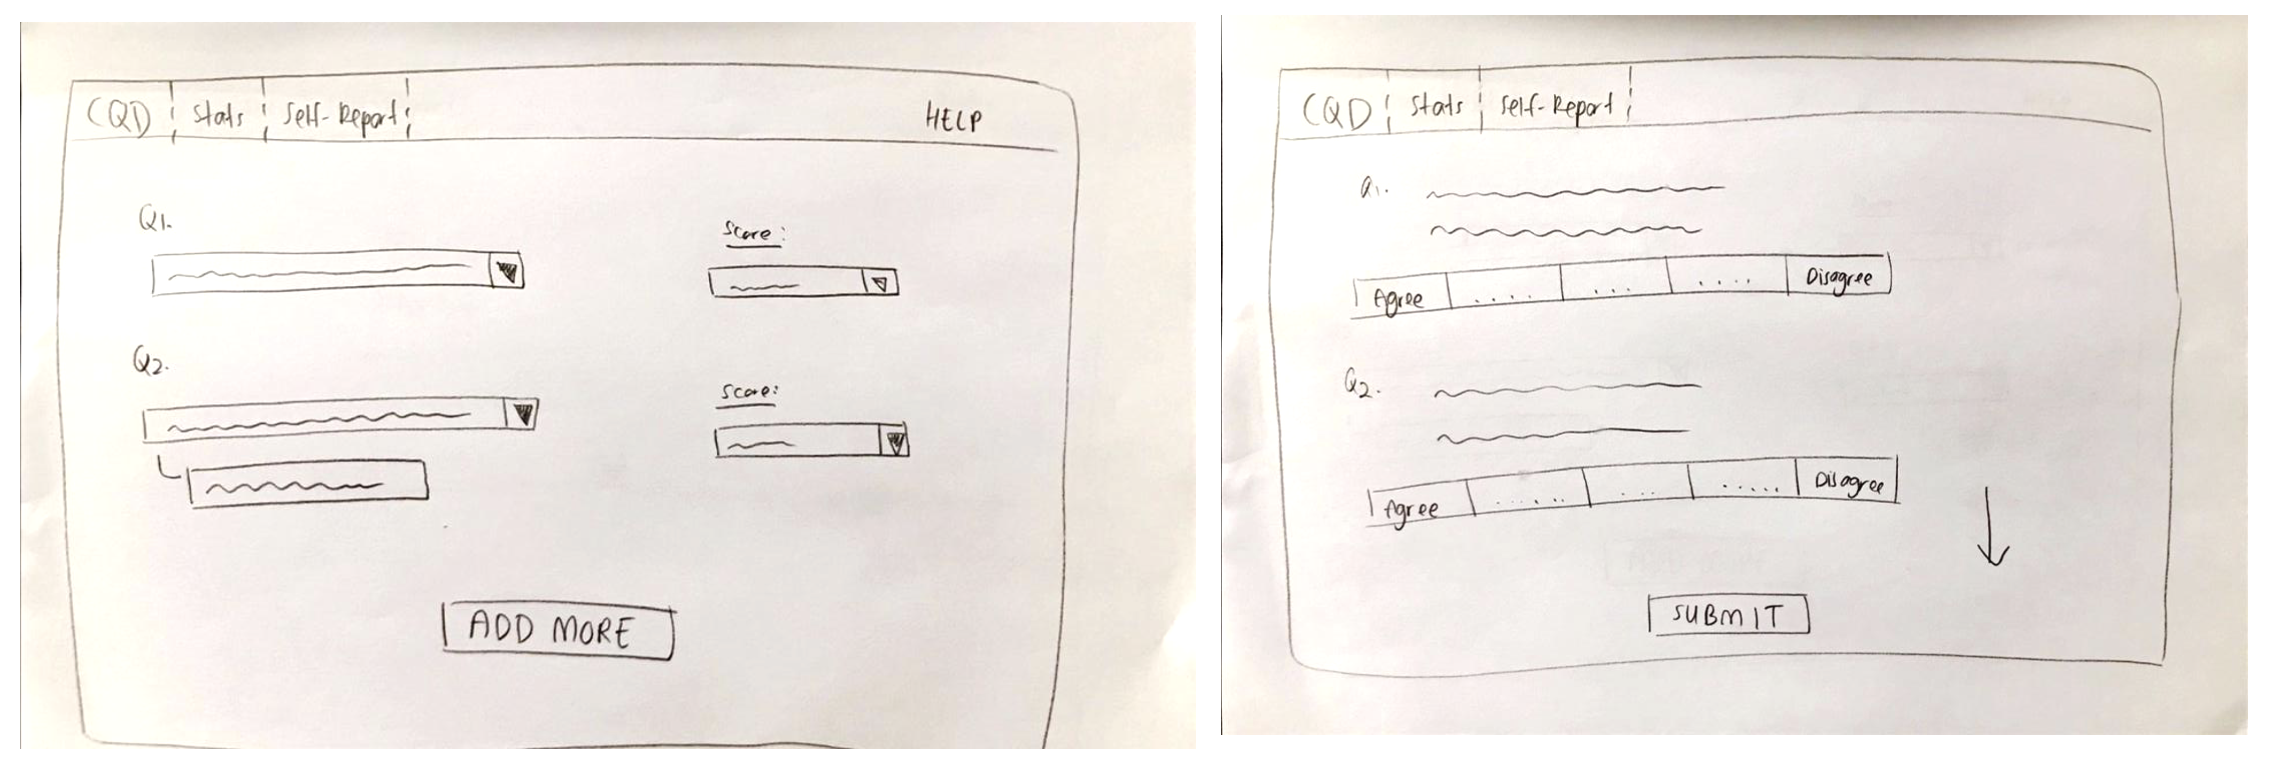 CQD Stats Self-Report HELP
Q1.
Score:
Q2.
Score:
ADD MORE
CQD Stats Self-Report
Q1.
Agree .... ... .... Disagree
Q2.
Agree ...... ... ..... Disagree
SUBMIT